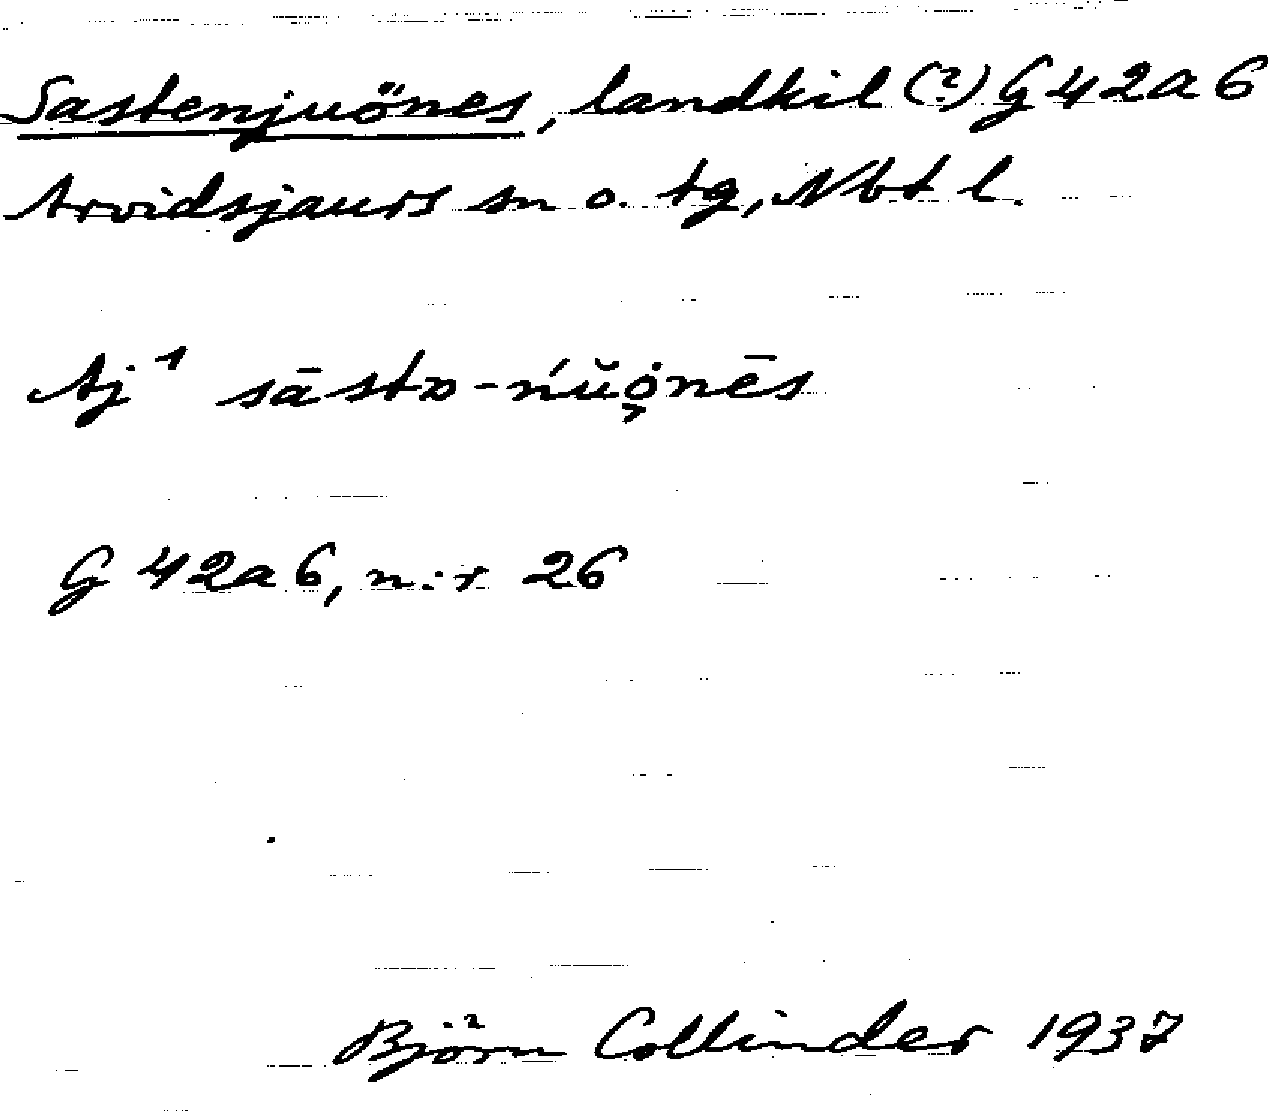 Sastenjuönes, landkil (?) G 42 a 6
Arvidsjaurs sn o. tg, Nbt l.
Aj¹ sāstɒ-ńŭo̭nēs
G 42 a 6, n:r 26
Björn Collinder 1937